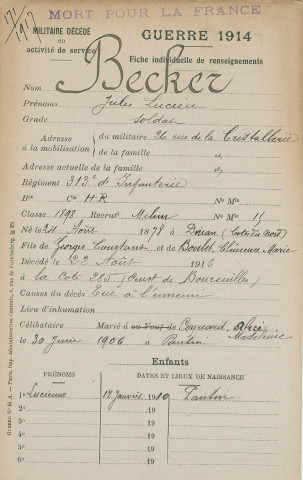 171
1917
MORT POUR LA FRANCE
MILITAIRE DÉCÉDÉ
en
activité de service
GUERRE 1914
Fiche individuelle de renseignements
Nom Becker
Prénoms Jules Lucien
Grade Soldat
Adresse à la mobilisation du militaire 26 rue de la Cristallerie
de la famille id
Adresse actuelle de la famille id
Régiment 313e d'Infanterie
Bon Cie H.R No Mle
Classe 1898 Recrut Melun No Mle 15
Né le 24 Août 1878 à Dinan (Cotes du Nord)
Fils de Georges Constant et de Boulet Clémence Marie
Décédé le 22 Août 1916
à la Cote 285 (Ouest de Boureuilles)
Causes du décès Tué à l'ennemi
Lieu d'inhumation
Célibataire Marié à ou Veuf de Coquard Alice Madeleine
le 30 Juin 1906 à Pantin
Enfants
PRÉNOMS DATES ET LIEUX DE NAISSANCE
1o Lucienne 12 Janvier 1910 Pantin
2o 19
3o 19
4o 19
5o 19
6o 19